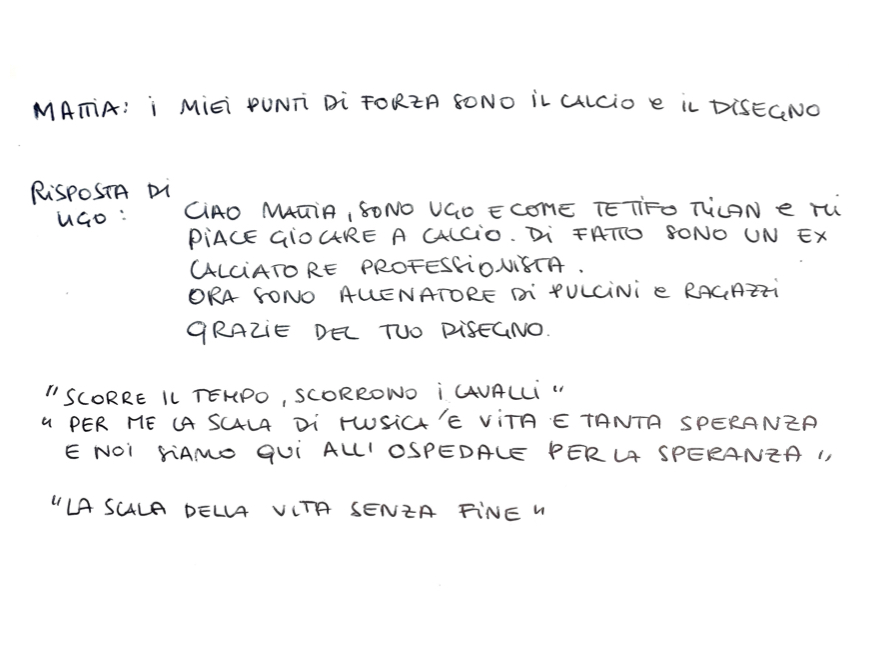 MATTIA: i MIEI PUNTI DI FORZA SONO IL CALCIO e IL DISEGNO
RISPOSTA DI
UGO:
CIAO MATTIA, SONO UGO E COME TE TIFO MILAN e MI
PIACE GIOCARE A CALCIO. DI FATTO SONO UN EX
CALCIATORE PROFESSIONISTA.
ORA SONO ALLENATORE DI PULCINI e RAGAZZI
GRAZIE DEL TUO DISEGNO.
"SCORRE IL TEMPO, SCORRONO i CAVALLI"
"PER ME LA SCALA DI MUSICA 'E VITA E TANTA SPERANZA
E NOI SIAMO QUI ALL'OSPEDALE PER LA SPERANZA"
"LA SCALA DELLA VITA SENZA FINE"